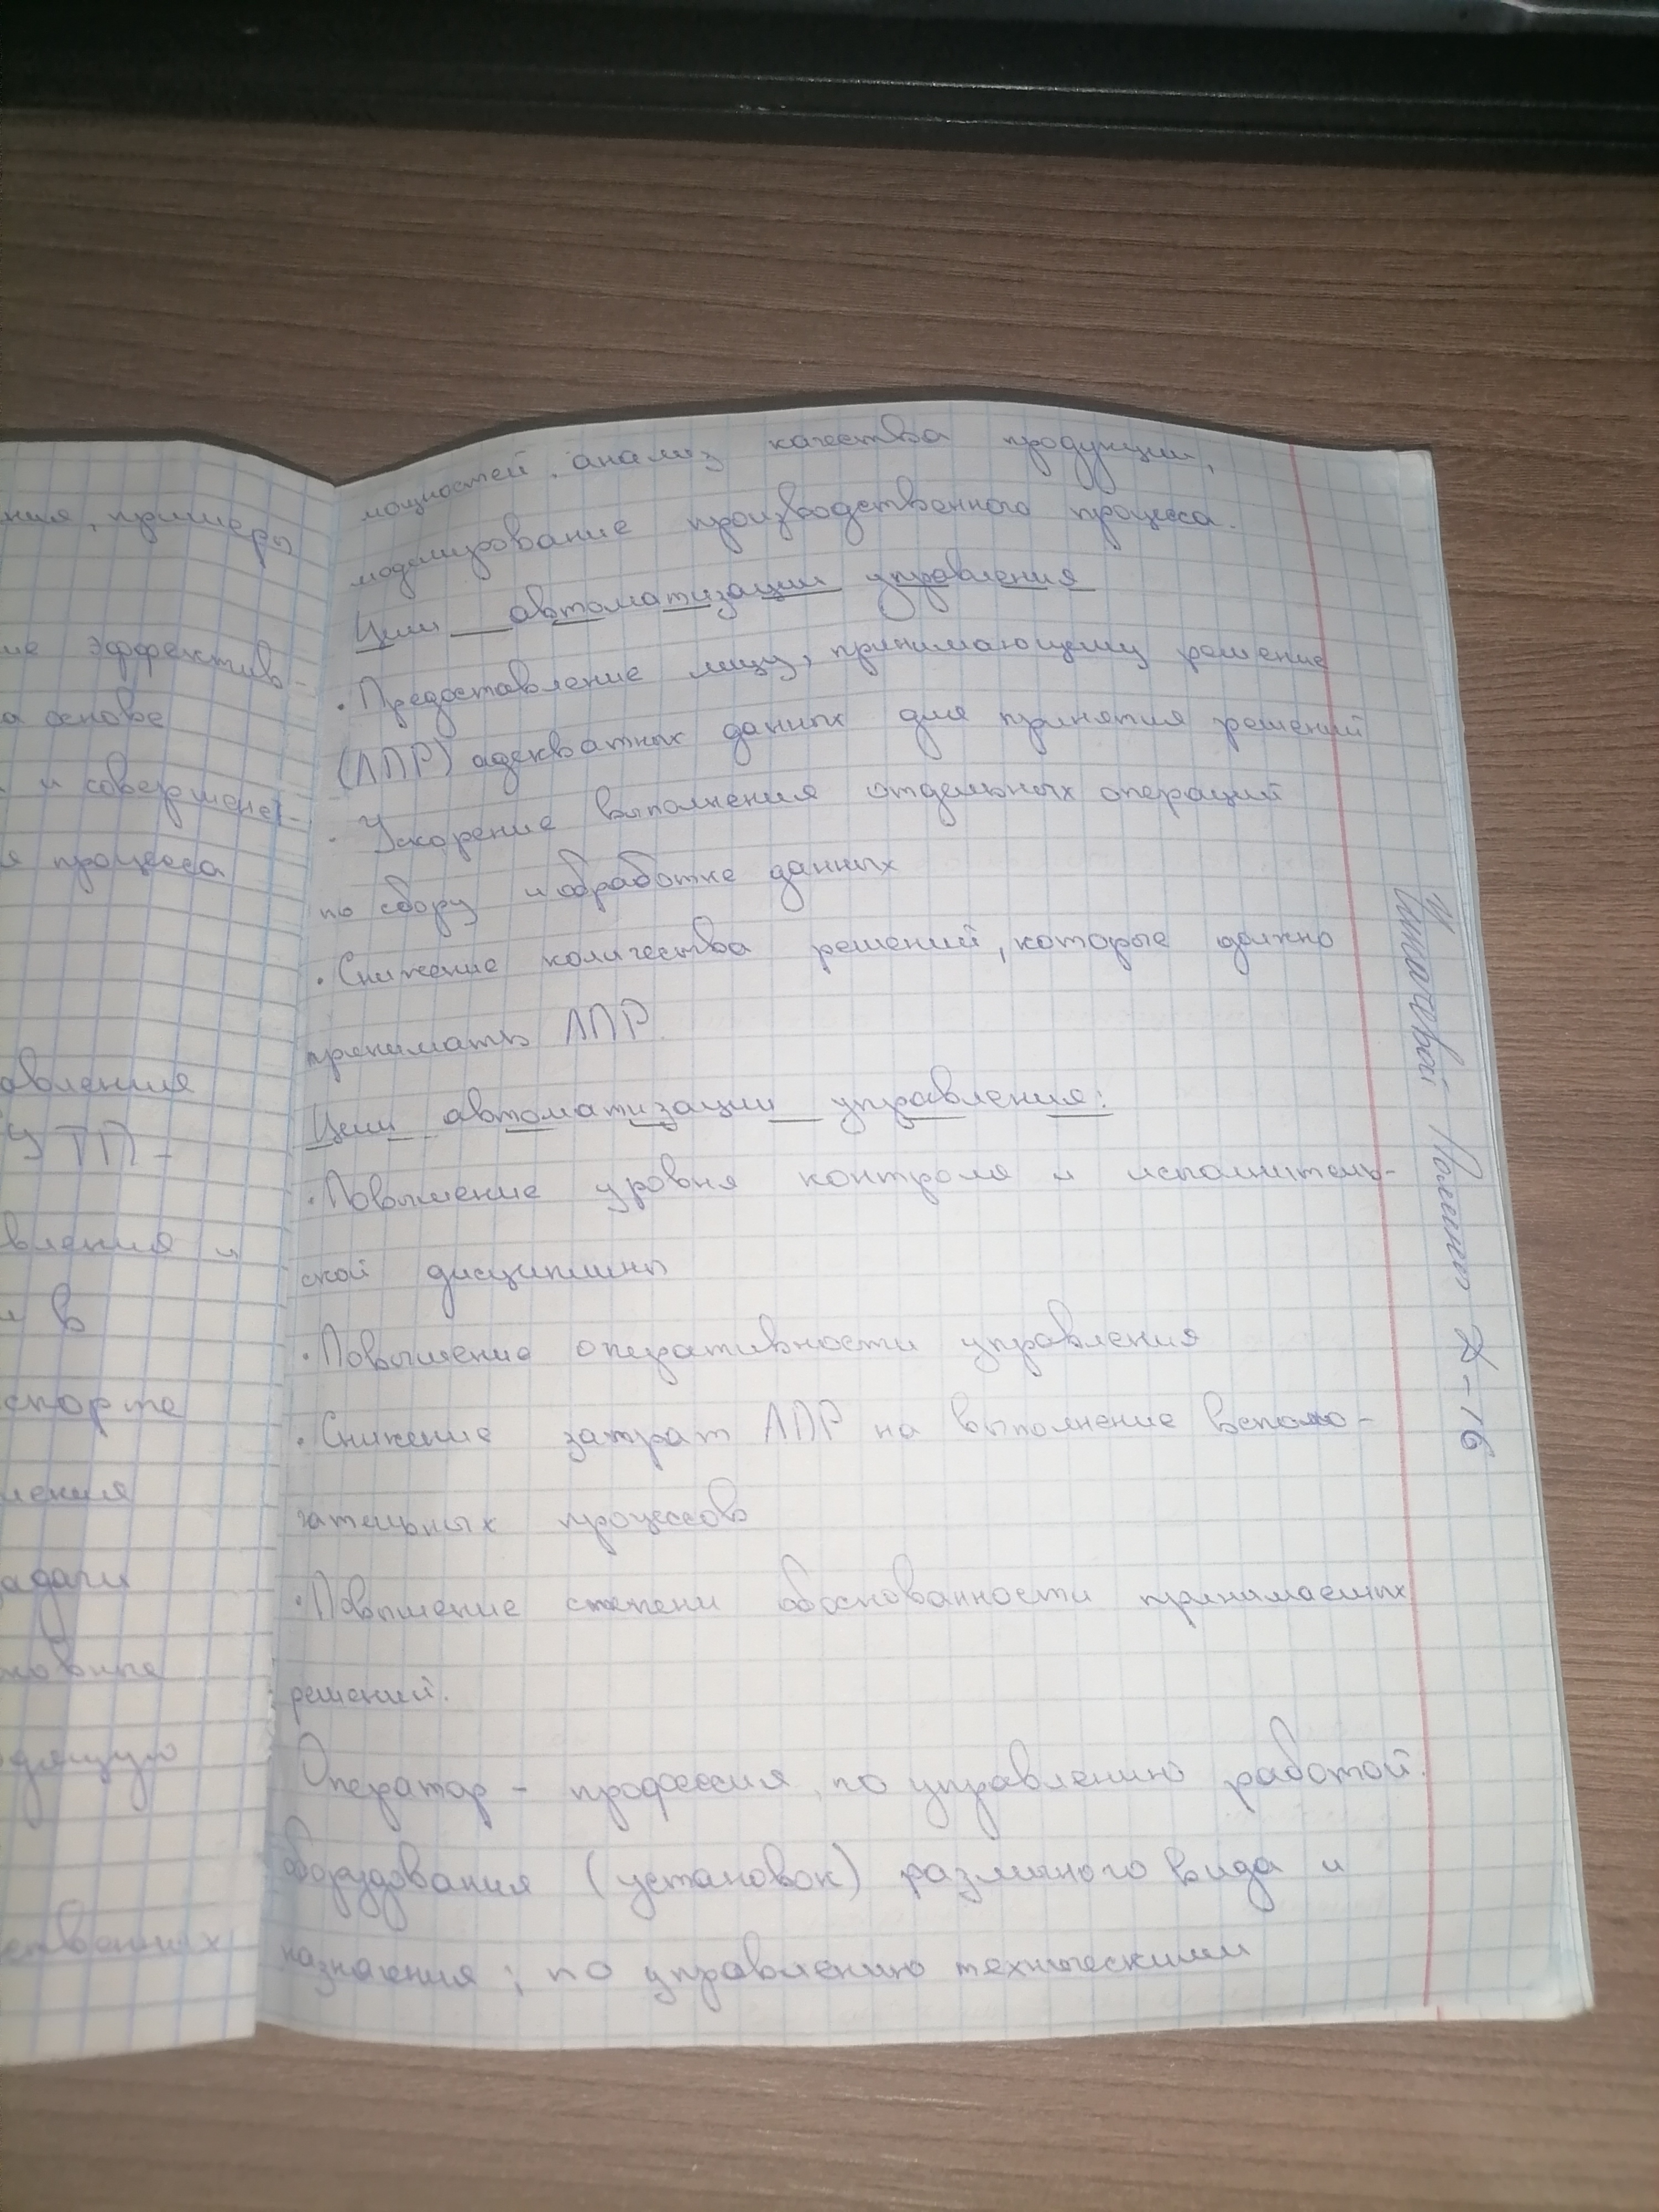 ния, примеры
ие эффектив-
а основе
и совершенст-
я процесса
авления
УТП-
вления и
и в
спорте
ления
адачи
новные
дящую
ственных
мощностей, анализ качества продукции,
моделирование производственного процесса.
Цели автоматизации управления
· Предоставление лицу, принимающему решение
(ЛПР) адекватных данных для принятия решений
· Ускорение выполнения отдельных операций
по сбору и обработке данных
· Снижение количества решений, которые должно
принимать ЛПР.
Цели автоматизации управления:
· Повышение уровня контроля и исполнитель-
ской дисциплины
· Повышение оперативности управления
· Снижение затрат ЛПР на выполнение вспомо-
гательных процессов
· Повышение степени обоснованности принимаемых
решений.
Оператор - профессия, по управлению работой
оборудования (установок) различного вида и
назначения; по управлению техническими
Полина Д-16